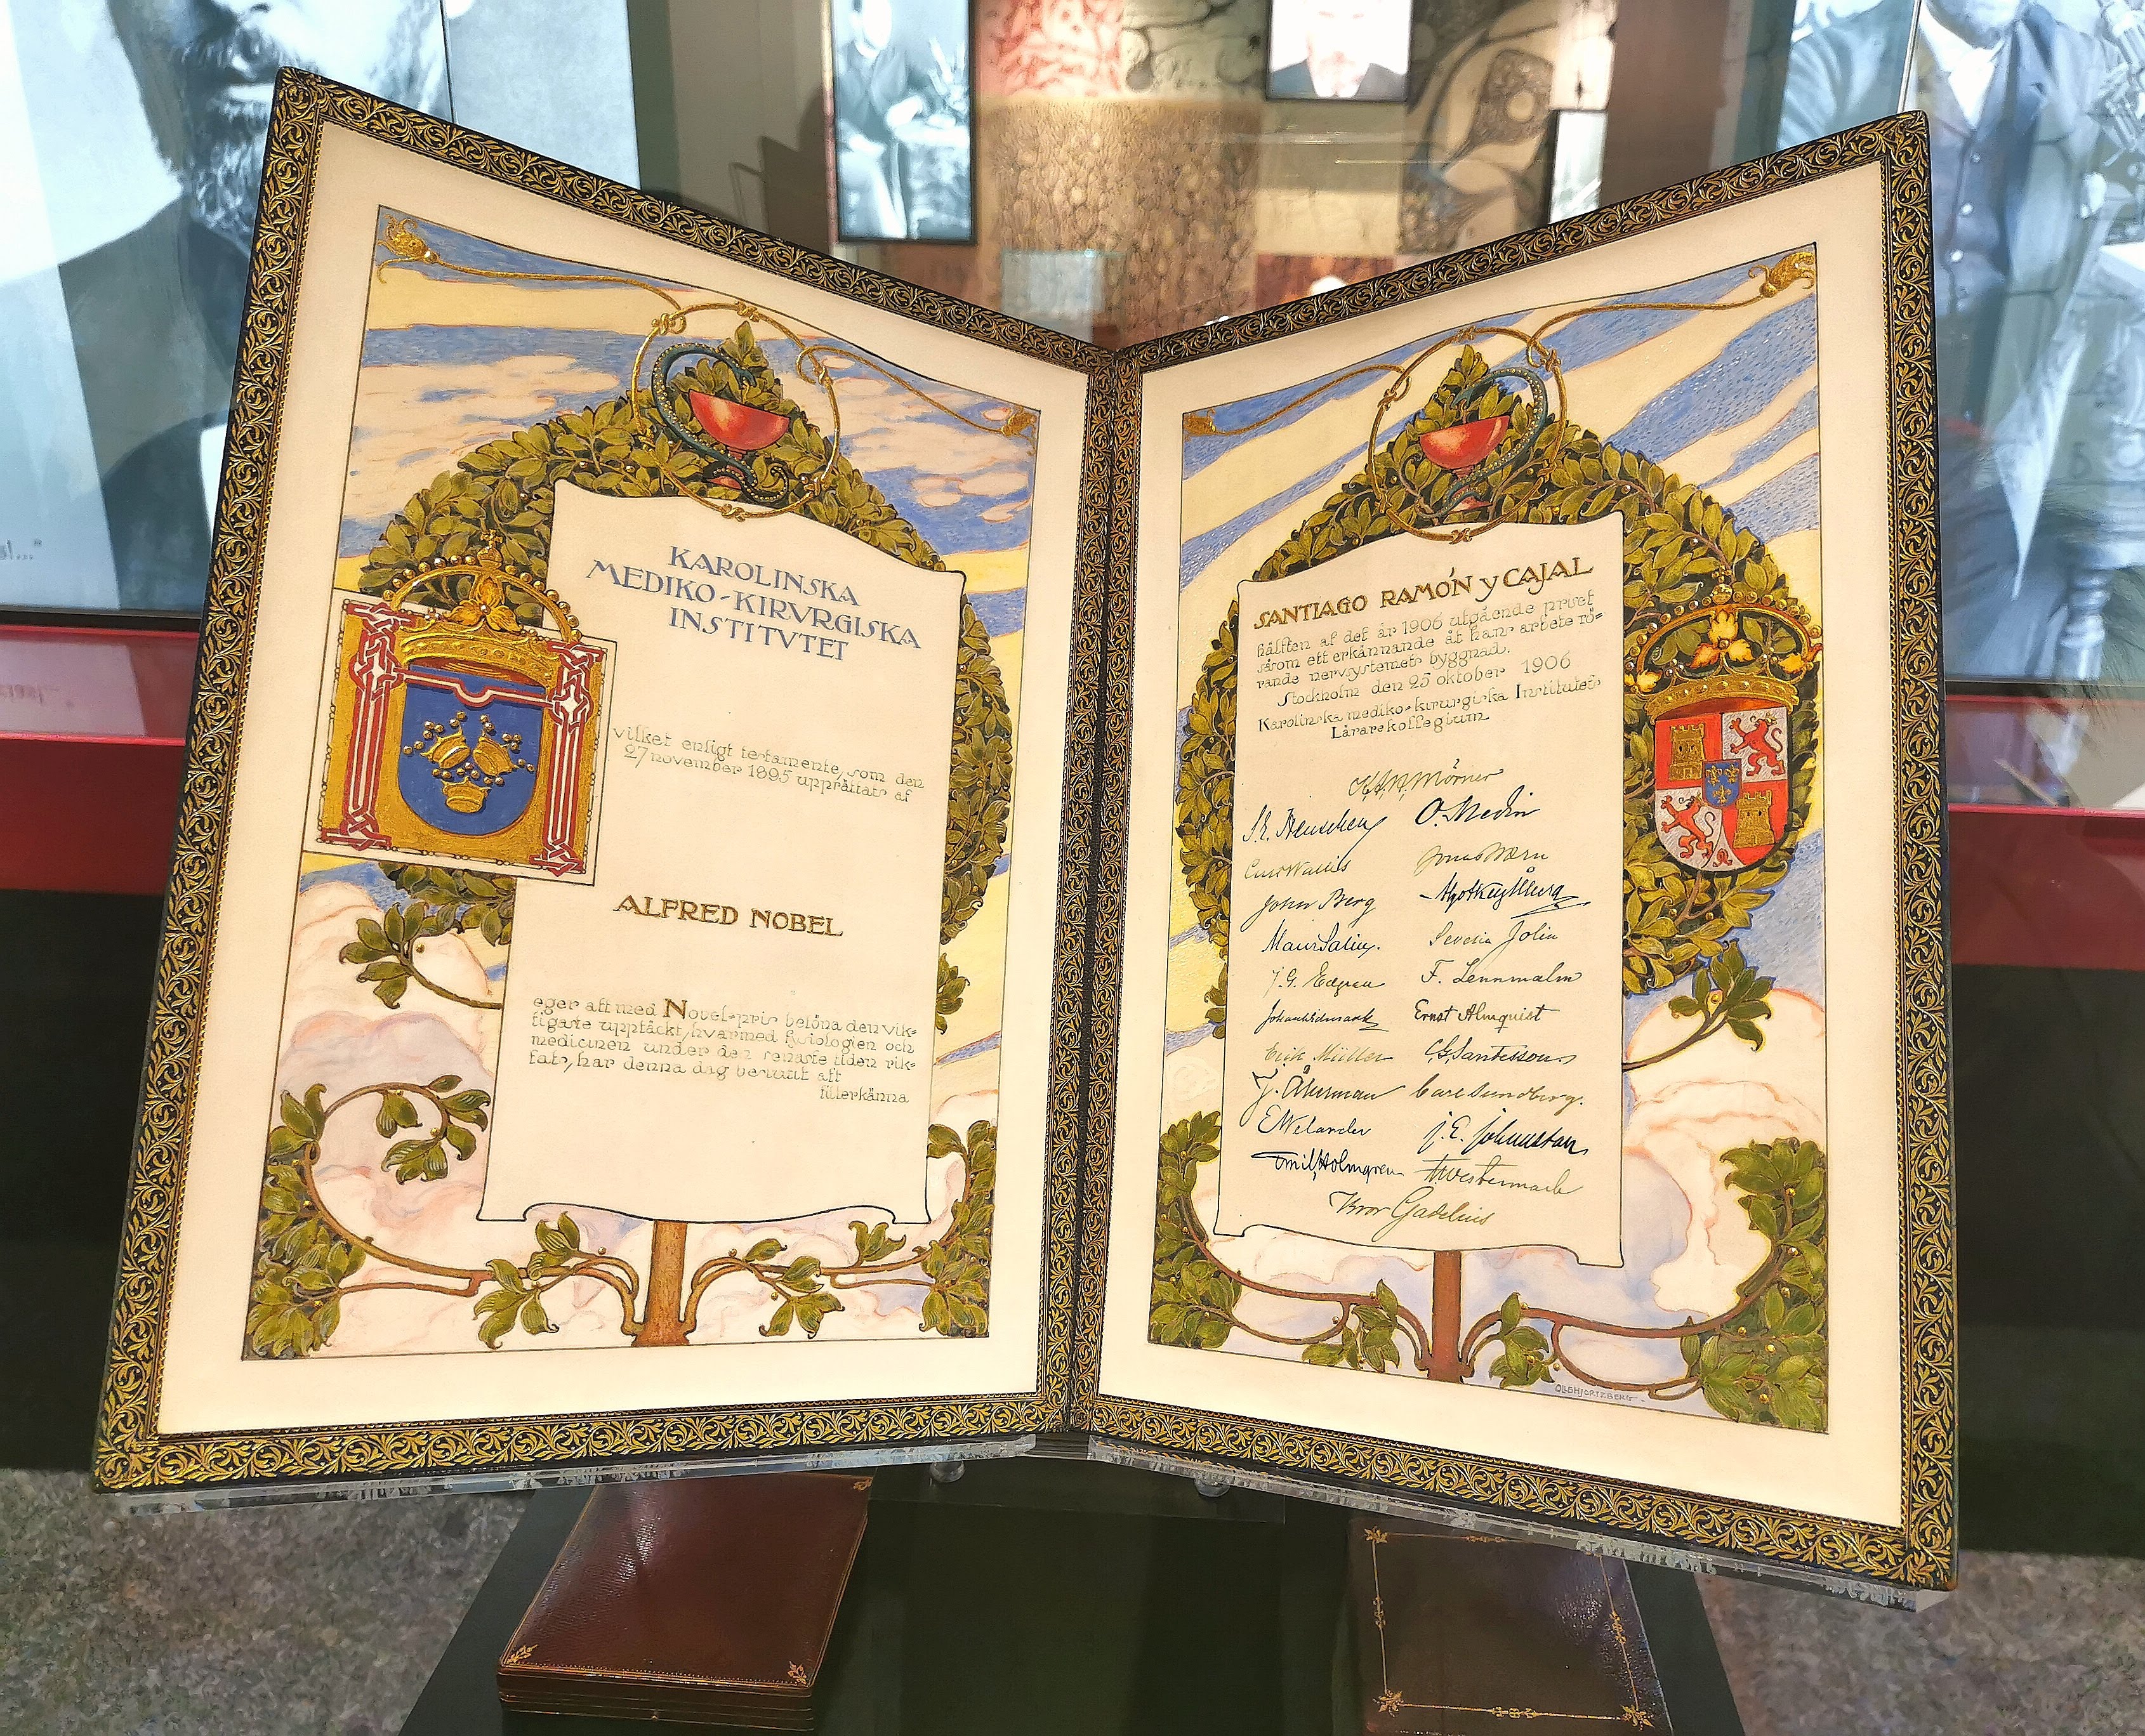 KAROLINSKA
MEDIKO-KIRVRGISKA
INSTITVTET
vilket enligt testamente, som den
27 november 1895 upprättats af
ALFRED NOBEL
eger att med Nobel-pris belöna den vik-
tigaste upptäckt, hvarmed fysiologien och
medicinen under den senaste tiden rik-
tats, har denna dag beslutit att
tillerkänna
SANTIAGO RAMÓN y CAJAL
hälften af det år 1906 utgående priset
såsom ett erkännande åt hans arbete rö-
rande nervsystemets byggnad.
Stockholm den 25 oktober 1906
Karolinska mediko-kirurgiska Institutets
Lärarekollegium
K.A.H. Mörner
S.E. Henschen O. Medin
Curt Wallis Jonas Wærn
John Berg
Maur Salin. Severin Jolin
J.G. Edgren F. Lennmalm
Johan Widmark Ernst Almquist
Erik Müller C.G. Santesson
J. Åkerman Carl Sundberg.
E Welander J. E. Johansson
Emil Holmgren F Westermark
Bror Gadelius
OLLE HJORTZBERG